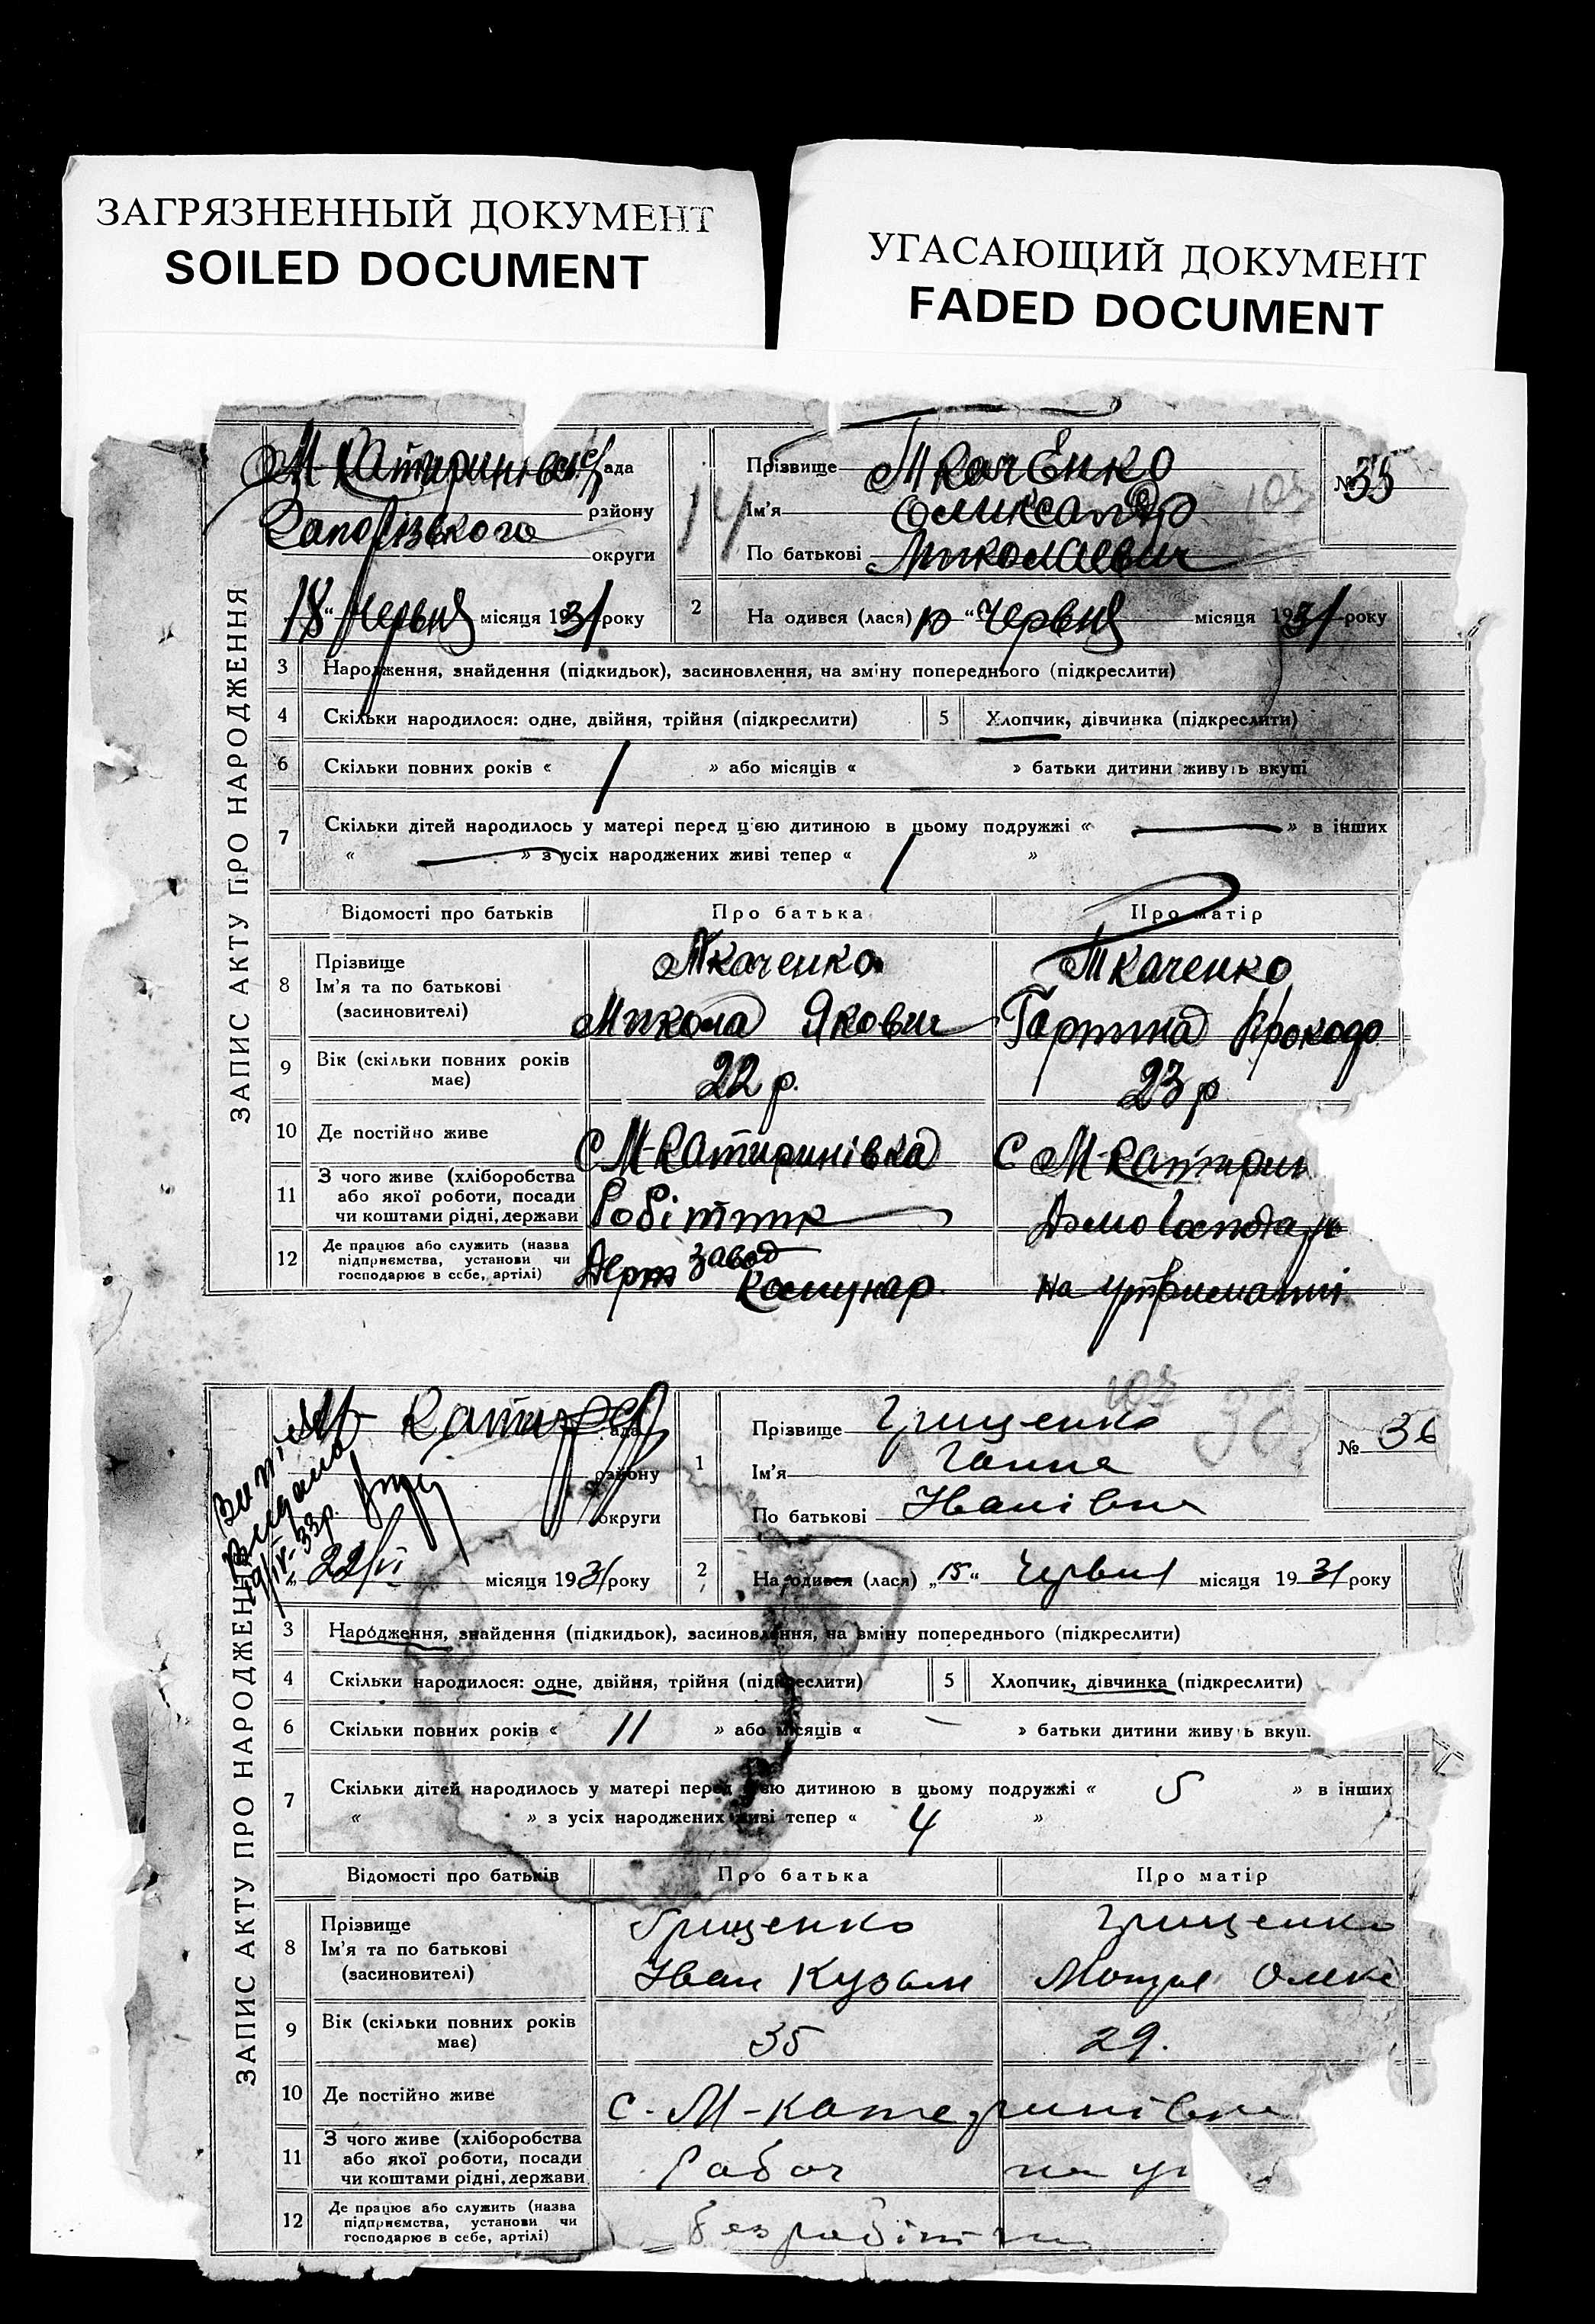 ЗАГРЯЗНЕННЫЙ ДОКУМЕНТ
SOILED DOCUMENT
УГАСАЮЩИЙ ДОКУМЕНТ
FADED DOCUMENT
ЗАПИС АКТУ ПРО НАРОДЖЕННЯ
М Катиринівс ада
району
Запорізького округи
18 “ Червня місяця 1931 року
14
Прізвище Ткаченко
Ім'я Олександр
По батькові Миколаевич
№ 35
2 На одився (лася) 10 “ Червня місяця 1931 року
3 Народження, знайдення (підкидьок), засиновлення, на зміну попереднього (підкреслити)
4 Скільки народилося: одне, двійня, трійня (підкреслити) 5 Хлопчик, дівчинка (підкреслити)
6 Скільки повних років « 1 » або місяців « » батьки дитини живуть вкупі
7 Скільки дітей народилось у матері перед цією дитиною в цьому подружжі « — » в інших
« — » з усіх народжених живі тепер « 1 »
Відомості про батьків Про батька Про матір
8 Прізвище Ткаченко Ткаченко
Ім'я та по батькові
(засиновителі) Микола Якович Прокоф
9 Вік (скільки повних років має) 22 р. 23 р
10 Де постійно живе С М-Катиринівка С М-Катирин
11 З чого живе (хліборобства або якої роботи, посади чи коштами рідні, держави Робітник Домогосподар
12 Де працює або служить (назва підприємства, установи чи господарює в себе, артілі) Держ завод Комунар на утриманні
ЗАПИС АКТУ ПРО НАРОДЖЕННЯ
М- Катир ада
району
округи
Видано
9/IV-33р.
„ 22/VI місяця 1931 року
103
1 Прізвище Грищенко
Ім'я Ганна
По батькові Иванівна
№ 36
2 На одився (лася) „15“ Червня місяця 1931 року
3 Народження, знайдення (підкидьок), засиновлення, на зміну попереднього (підкреслити)
4 Скільки народилося: одне, двійня, трійня (підкреслити) 5 Хлопчик, дівчинка (підкреслити)
6 Скільки повних років « 11 » або місяців « — » батьки дитини живуть вкуп
7 Скільки дітей народилось у матері перед цією дитиною в цьому подружжі « 5 » в інших
« » з усіх народжених живі тепер « 4 »
Відомості про батьків Про батька Про матір
8 Прізвище Грищенко Грищенко
Ім'я та по батькові
(засиновителі) Иван Кузьм Мотря Олекс
9 Вік (скільки повних років має) 35 29.
10 Де постійно живе с. М-Катеринівка
11 З чого живе (хліборобства або якої роботи, посади чи коштами рідні, держави Рабоч на ут
12 Де працює або служить (назва підприємства, установи чи господарює в себе, артілі) безробітни